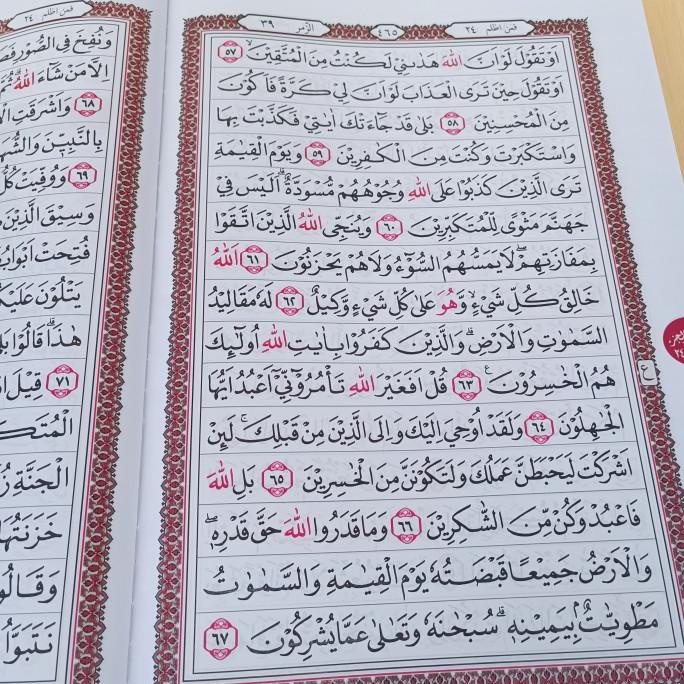 فمن اظلم ٢٤
٤٦٥
الزّمر ٣٩
اَوْ تَقُولَ لَوْ اَنَّ اللهَ هَدٰىنِيْ لَكُنْتُ مِنَ الْمُتَّقِيْنَۙ ٥٧
اَوْ تَقُوْلَ حِيْنَ تَرَى الْعَذَابَ لَوْ اَنَّ لِيْ كَرَّةً فَاَكُوْنَ
مِنَ الْمُحْسِنِيْنَ ٥٨ بَلٰى قَدْ جَآءَتْكَ اٰيٰتِيْ فَكَذَّبْتَ بِهَا
وَاسْتَكْبَرْتَ وَكُنْتَ مِنَ الْكٰفِرِيْنَ ٥٩ وَيَوْمَ الْقِيٰمَةِ
تَرَى الَّذِيْنَ كَذَبُوْا عَلَى اللهِ وُجُوْهُهُمْ مُّسْوَدَّةٌ ۗ اَلَيْسَ فِيْ
جَهَنَّمَ مَثْوًى لِّلْمُتَكَبِّرِيْنَ ٦٠ وَيُنَجِّى اللهُ الَّذِيْنَ اتَّقَوْا
بِمَفَازَتِهِمْۖ لَا يَمَسُّهُمُ السُّوْٓءُ وَلَا هُمْ يَحْزَنُوْنَ ٦١ اَللهُ
خَالِقُ كُلِّ شَيْءٍۙ وَّهُوَ عَلٰى كُلِّ شَيْءٍ وَّكِيْلٌ ٦٢ لَهٗ مَقَالِيْدُ
السَّمٰوٰتِ وَالْاَرْضِۗ وَالَّذِيْنَ كَفَرُوْا بِاٰيٰتِ اللهِ اُولٰٓئِكَ
هُمُ الْخٰسِرُوْنَ ٦٣ قُلْ اَفَغَيْرَ اللهِ تَأْمُرُوْٓنِّيْٓ اَعْبُدُ اَيُّهَا
الْجٰهِلُوْنَ ٦٤ وَلَقَدْ اُوْحِيَ اِلَيْكَ وَاِلَى الَّذِيْنَ مِنْ قَبْلِكَۚ لَىِٕنْ
اَشْرَكْتَ لَيَحْبَطَنَّ عَمَلُكَ وَلَتَكُوْنَنَّ مِنَ الْخٰسِرِيْنَ ٦٥ بَلِ اللهَ
فَاعْبُدْ وَكُنْ مِّنَ الشّٰكِرِيْنَ ٦٦ وَمَا قَدَرُوا اللهَ حَقَّ قَدْرِهٖۖ
وَالْاَرْضُ جَمِيْعًا قَبْضَتُهٗ يَوْمَ الْقِيٰمَةِ وَالسَّمٰوٰتُ
مَطْوِيّٰتٌۢ بِيَمِيْنِهٖۗ سُبْحٰنَهٗ وَتَعٰلٰى عَمَّا يُشْرِكُوْنَ ٦٧
ع
فمن اظلم ٢٤
وَنُفِخَ فِى الصُّوْرِ
اِلَّا مَنْ شَآءَ اللهُ ۗ ثُمَّ
٦٨ وَاَشْرَقَتِ
بِالنَّبِيّٖنَ
٦٩ وَوُفِّيَتْ كُلُّ
وَسِيْقَ الَّذِيْنَ
فُتِحَتْ
يَتْلُوْنَ
هٰذَا ۗقَالُوْا
٧١ قِيْلَ
الْجَنَّةِ
خَزَنَتُهَا